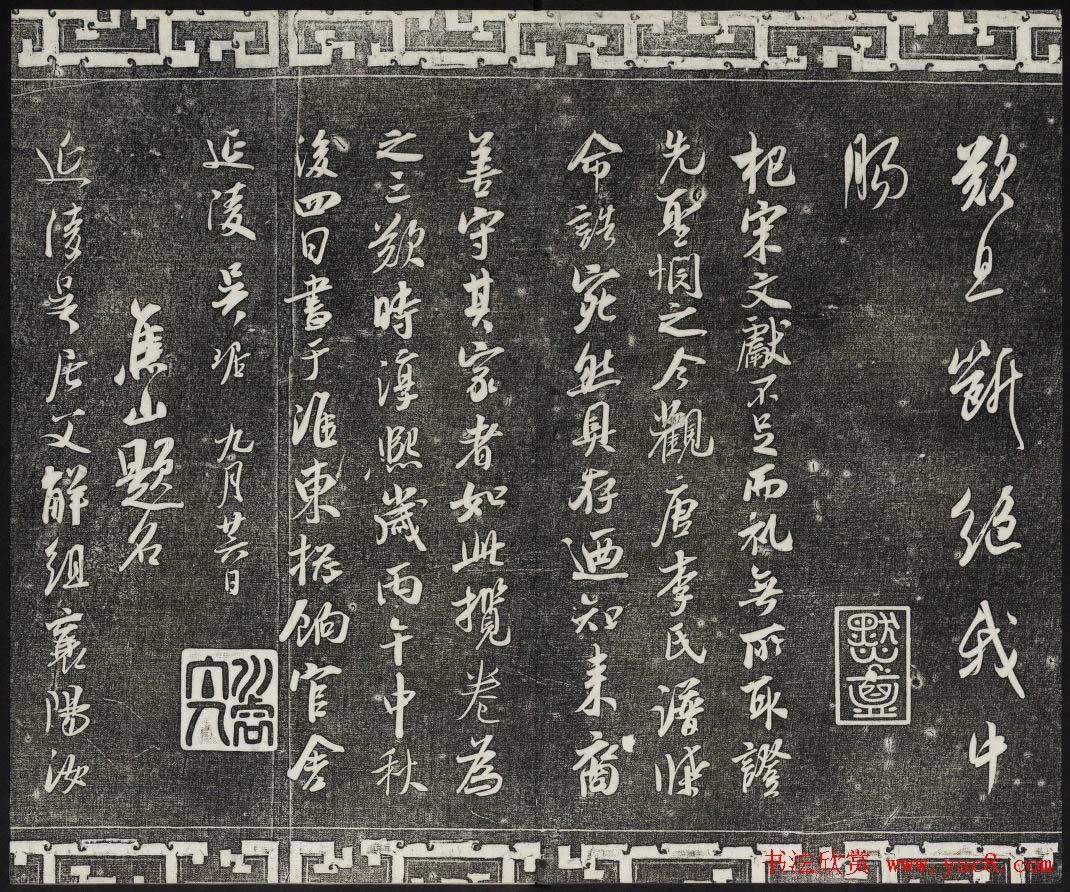 歎息斷絕我中
腸
杞宋文獻不足而礼無所取證
先聖憫之今觀唐李氏譜牒
命誥宛然具存迺知来裔
善守其家者如此攬卷為
之三歎時淳熙歲丙午中秋
後四日書于淮東揔餉官舍
延陵吴琚 九月廿六日
焦山題名
延陵吴居父解組襄陽汝
书法欣赏 www.yac8.com